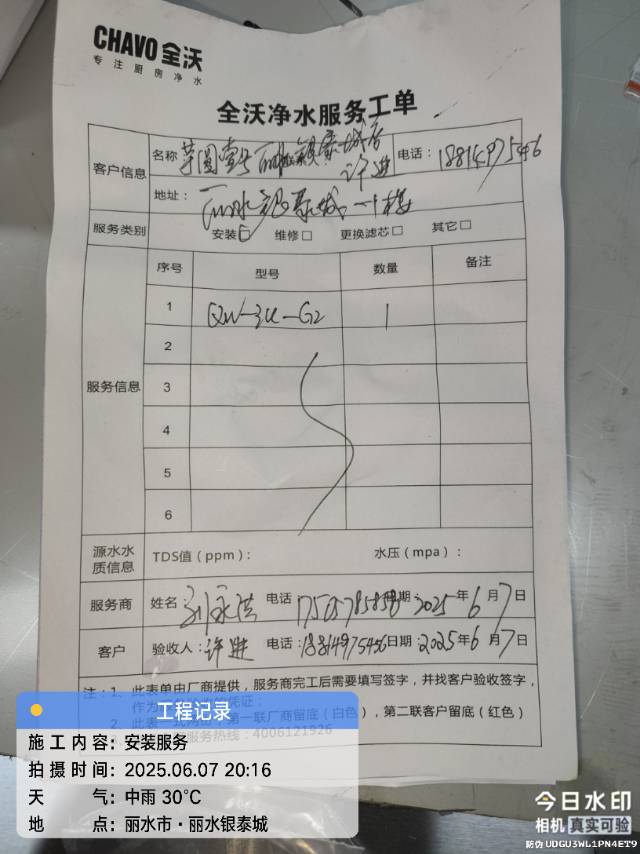 CHAVO 全沃
专注厨房净水
全沃净水服务工单
客户信息
名称 芋圆壹号 丽水银泰城店 许进
电话：18814975456
地址： 丽水银泰城一楼
服务类别 安装☑ 维修□ 更换滤芯□ 其它□
服务信息
序号 型号 数量 备注
1 QW-3U-G2 1
2
3
4
5
6
源水水质信息 TDS值（ppm）： 水压（mpa）：
服务商 姓名： 电话 日期 2025年6月7日
客户 验收人：许进 电话：18814975456 日期：2025年6月7日
注：1、此表单由厂商提供，服务商完工后需要填写签字，并找客户验收签字，
作为
2、此表 第一联厂商留底（白色），第二联客户留底（红色）
服务热线：4006121926
工程记录
施工内容：安装服务
拍摄时间：2025.06.07 20:16
天 气：中雨 30℃
地 点：丽水市·丽水银泰城
今日水印
相机 真实可验
防伪 UDGU3WL1PN4ET9